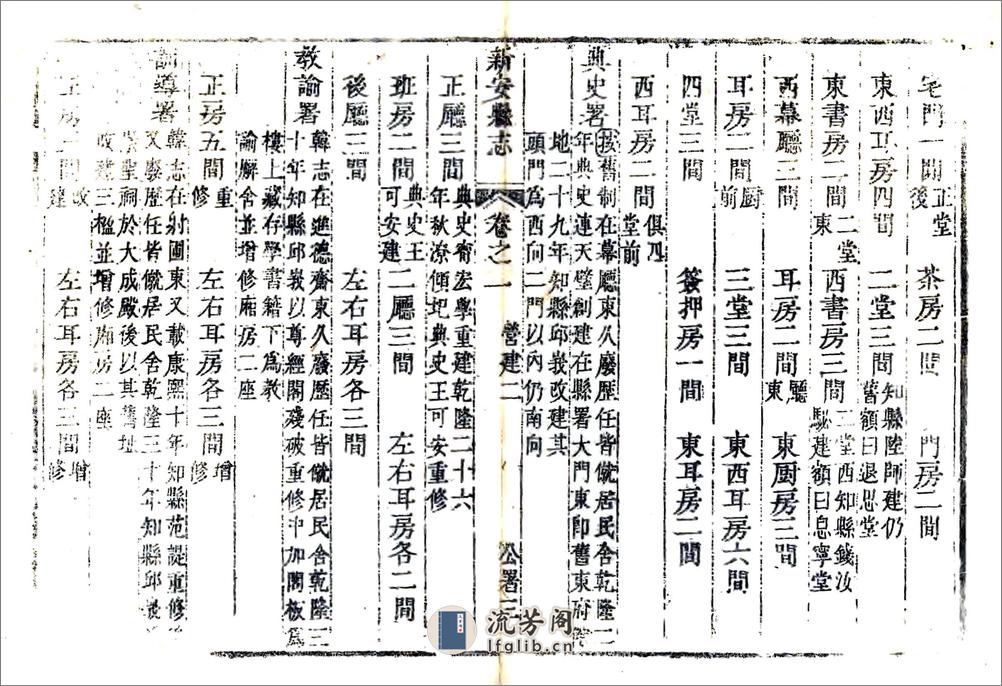 宅門一間正堂後 茶房二間 門房二間
東西耳房四間 二堂三間知縣陸師建仍舊額曰退思堂
東書房二間二堂東 西書房三間二堂西知縣錢汝駪建額曰息寧堂
西幕廳二間 耳房二間廳東 東厨房三間
耳房二間厨前 三堂三間 東西耳房六間
四堂三間 簽押房一間 東耳房二間
西耳房二間俱四堂前
典史署按舊制在幕廳東久廢歷任皆僦居民舍乾隆二
年典史連天璧創建在縣署大門東即舊東府館
地二十九年知縣邱峩改建其
頭門爲西向二門以內仍南向
新安縣志 卷之二 營建二 公署三
正廳三間典史甯宏學重建乾隆二十六
年秋潦傾圯典史王可安重修
班房二間典史王可安建 二廳三間 左右耳房各二間
後廳三間 左右耳房各三間
教諭署韓志在進德齋東久廢歷任皆僦居民舍乾隆三
十年知縣邱峩以尊經閣殘破重修中加閣板爲
樓上藏存學書籍下爲教
諭廨舍並增修廂房二座
正房五間重修 左右耳房各三間增修
訓導署韓志在射圃東又載康熙十年知縣范諟重修
又廢歷任皆僦居民舍乾隆三十年知縣邱峩
聖祠於大成殿後以其舊址
改建三楹並增修廂房二座
正房三間改建 左右耳房各三間增修
流芳阁
lfglib.cn